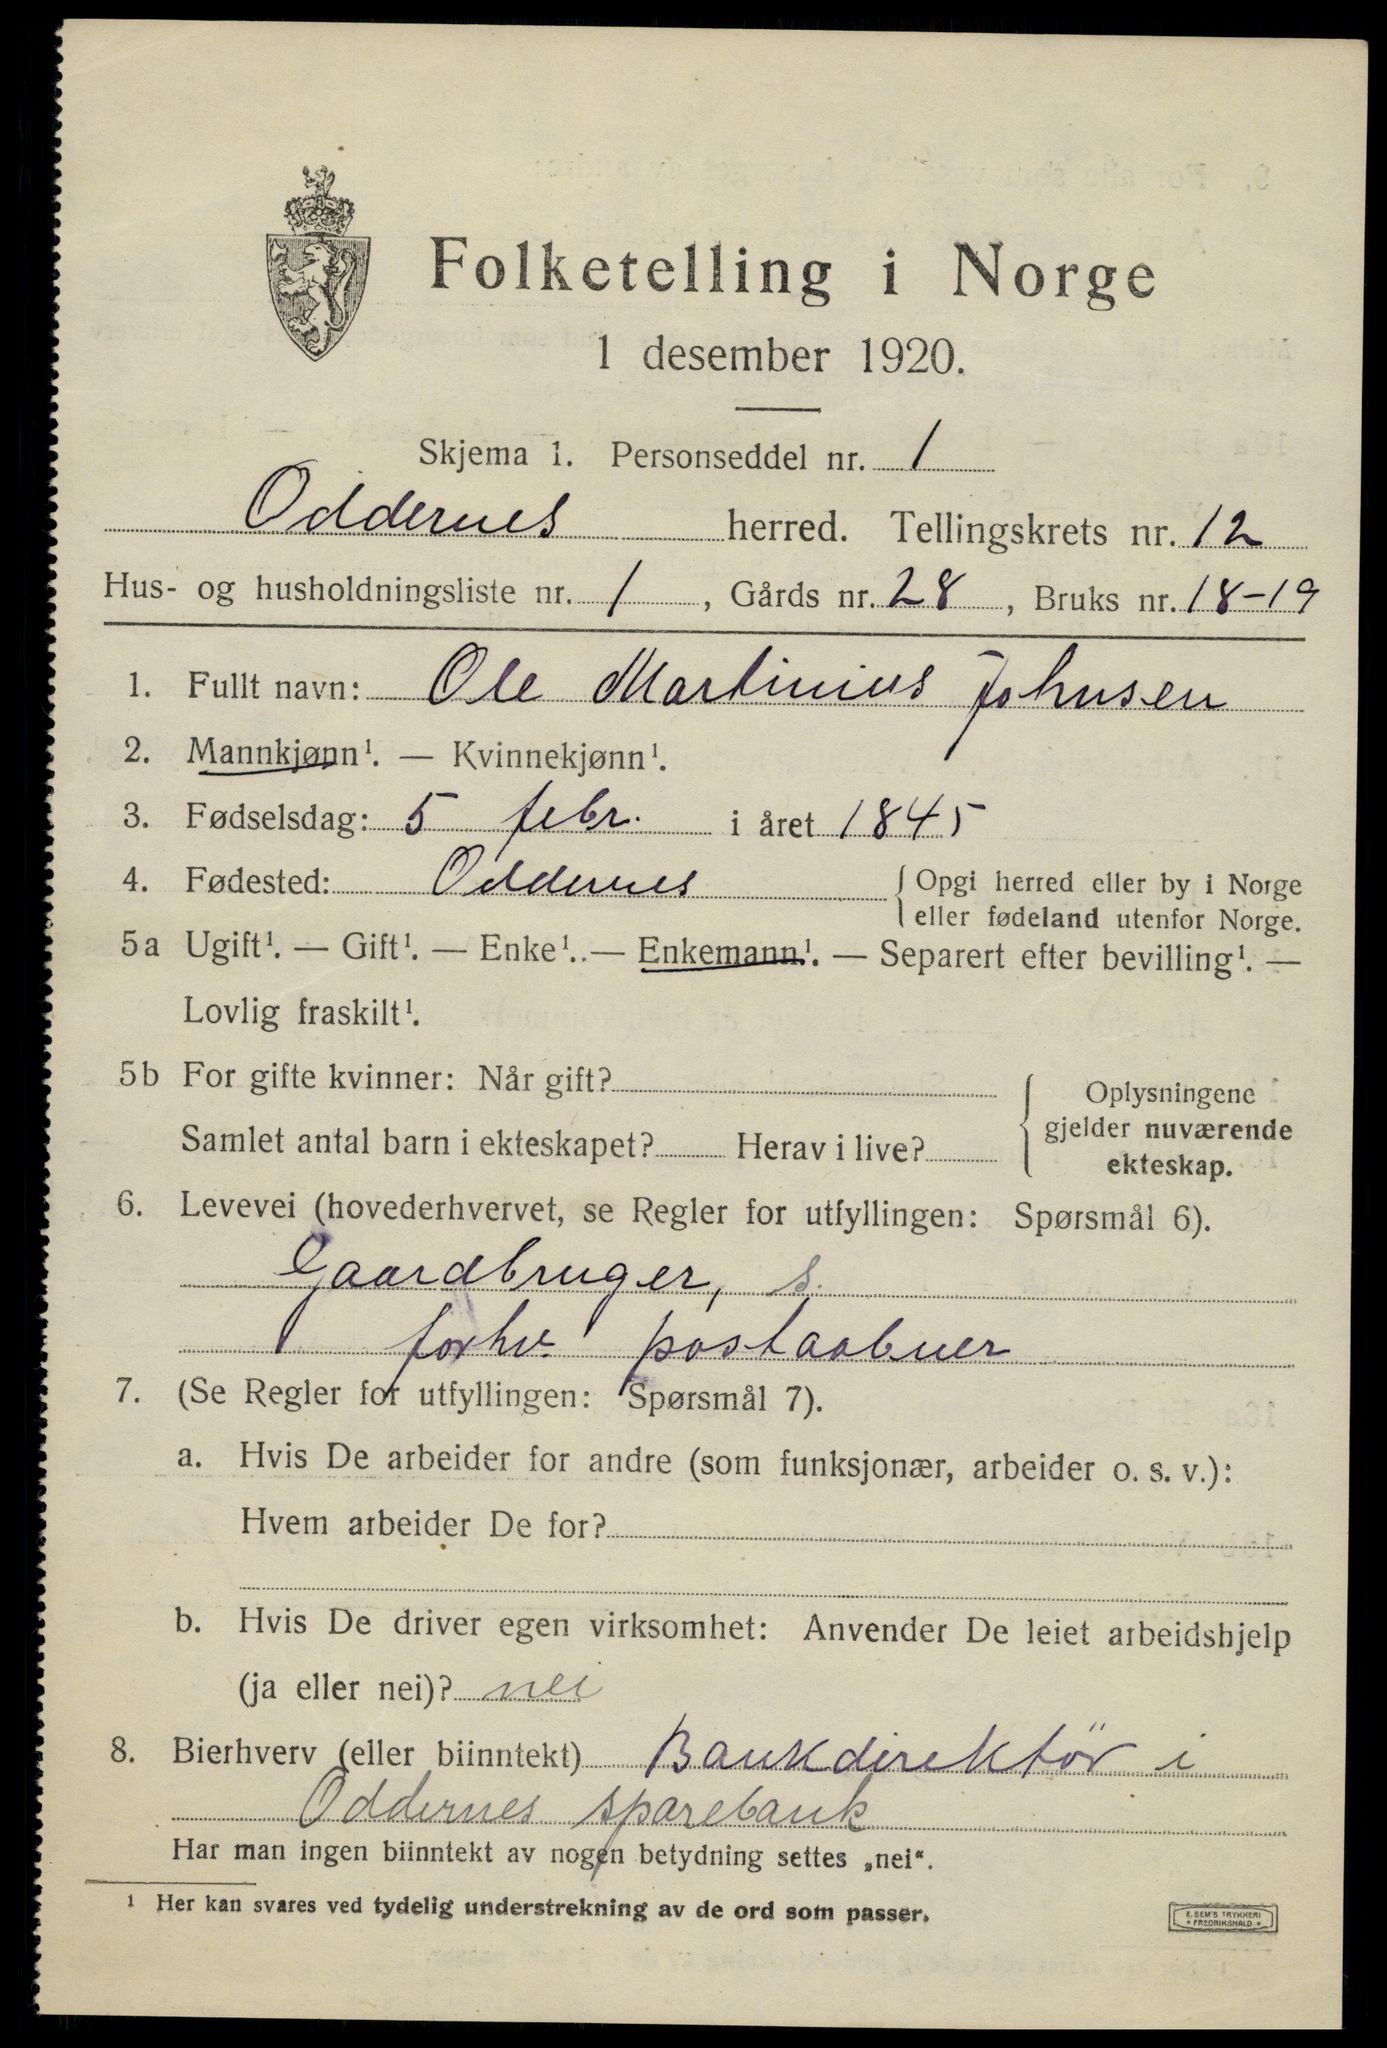 Folketelling i Norge
1 desember 1920.
Skjema 1. Personseddel nr. 1
Oddernes herred. Tellingskrets nr. 12
Hus- og husholdningsliste nr. 1, Gårds nr. 28, Bruks nr. 18-19
1. Fullt navn: Ole Martinius Johnsen
2. Mannkjønn¹. — Kvinnekjønn¹.
3. Fødselsdag: 5 febr. i året 1845
4. Fødested: Oddernes { Opgi herred eller by i Norge
eller fødeland utenfor Norge.
5a Ugift¹. — Gift¹. — Enke¹. — Enkemann¹. — Separert efter bevilling¹. —
Lovlig fraskilt¹.
5b For gifte kvinner: Når gift? { Oplysningene
gjelder nuværende
Samlet antal barn i ekteskapet? Herav i live?
ekteskap.
6. Levevei (hovederhvervet, se Regler for utfyllingen: Spørsmål 6).
Gaardbruger, s.
forhv. postaabner
7. (Se Regler for utfyllingen: Spørsmål 7).
a. Hvis De arbeider for andre (som funksjonær, arbeider o. s. v.):
Hvem arbeider De for?
b. Hvis De driver egen virksomhet: Anvender De leiet arbeidshjelp
(ja eller nei)? nei
8. Bierhverv (eller biinntekt) Bankdirektør i
Oddernes sparebank
Har man ingen biinntekt av nogen betydning settes „nei“.
¹ Her kan svares ved tydelig understrekning av de ord som passer.
E. SEM'S TRYKKERI
* FREDRIKSHALD *